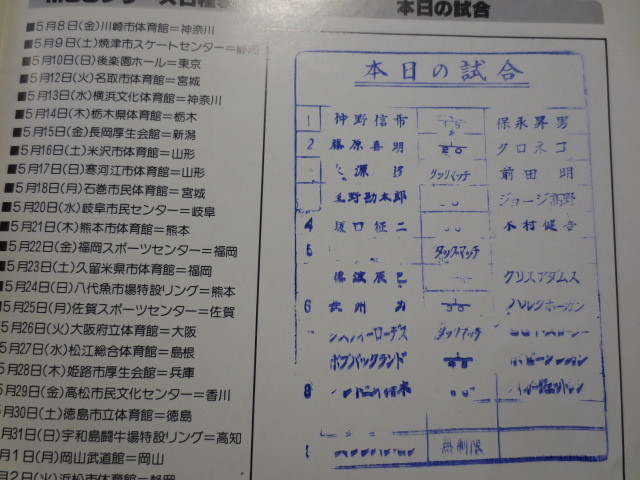 本日の試合
■5月8日(金)川崎市体育館=神奈川
■5月9日(土)焼津市スケートセンター=静岡
■5月10日(日)後楽園ホール=東京
■5月12日(火)名取市体育館=宮城
■5月13日(水)横浜文化体育館=神奈川
■5月14日(木)栃木県体育館=栃木
■5月15日(金)長岡厚生会館=新潟
■5月16日(土)米沢市体育館=山形
■5月17日(日)寒河江市体育館=山形
■5月18日(月)石巻市民体育館=宮城
■5月20日(水)岐阜市民センター=岐阜
■5月21日(木)熊本市体育館=熊本
■5月22日(金)福岡スポーツセンター=福岡
■5月23日(土)久留米県市体育館=福岡
■5月24日(日)八代魚市場特設リング=熊本
5月25日(月)佐賀スポーツセンター=佐賀
5月26日(火)大阪府立体育館=大阪
5月27日(水)松江総合体育館=島根
5月28日(木)姫路市厚生会館=兵庫
月29日(金)高松市民文化センター=香川
月30日(土)徳島市立体育館=徳島
月31日(日)宇和島闘牛場特設リング=高知
月1日(月)岡山武道館=岡山
月2日(火)浜松市体育館=静岡
本日の試合
1 仲野信市 保永昇男
2 藤原喜明 クロネコ
源 タッグマッチ 前田 明
毛野勘太郎 ジョージ高野
4 坂口征二 木村健吾
5 タッグマッチ
藤波辰巳 クリスアダムス
6 長州 力 ハルクホーガン
タッグマッチ
ボブバックランド
8
無制限